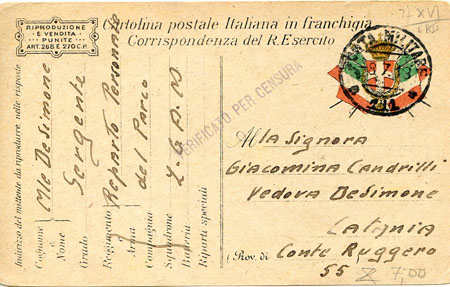 RIPRODUZIONE
E VENDITA
PUNITE
ART. 268 E 270 C.P.
Cartolina postale Italiana in franchigia
Corrispondenza del R. Esercito
POSTA MILITARE
VERIFICATO PER CENSURA
Indirizzo del mittente da riprodurre nelle risposte
Cognome e Nome Mle DeSimone
Grado Sergente
Regimento Reparto Personale
Arma
Compagnia del Parco
Squadrone
Batteria 2-G.A.M
Riparti speciali
Alla Signora
Giacomina Candrilli
Vedova DeSimone
Catania
(Prov. di Conte Ruggero
55
7,00